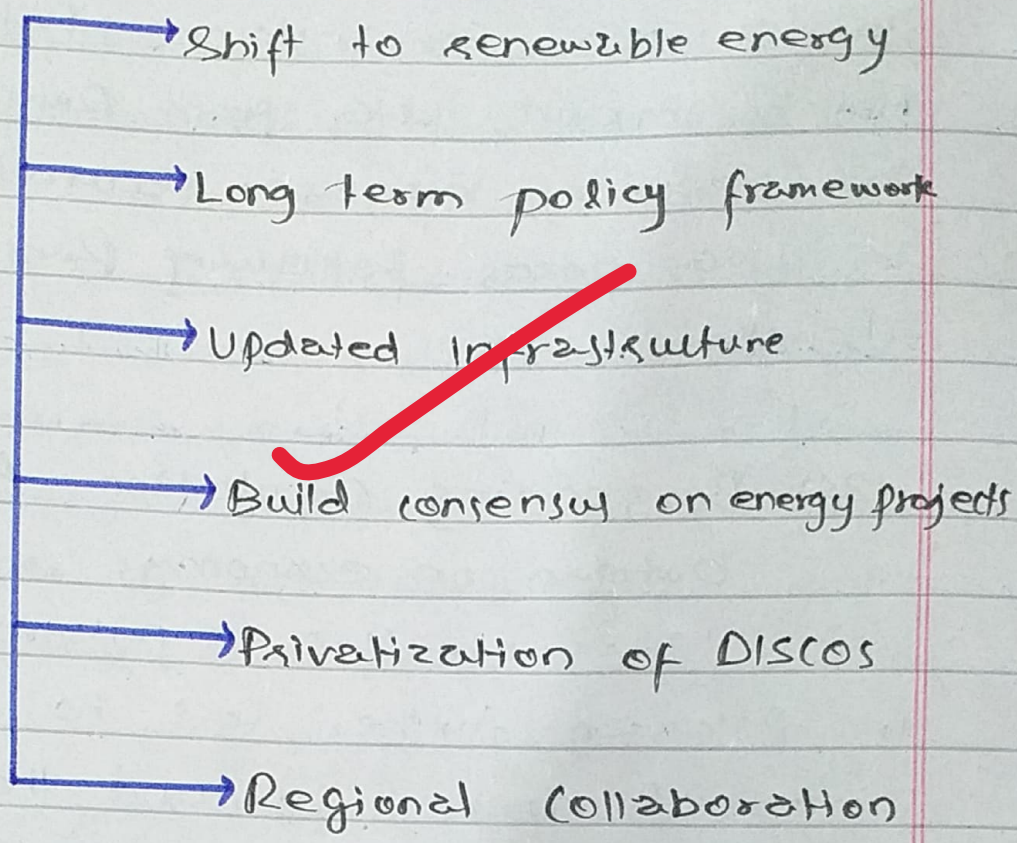 Shift to renewable energy
Long term policy framework
Updated infrastructure
Build consensus on energy projects
Privatization of DISCOS
Regional Collaboration